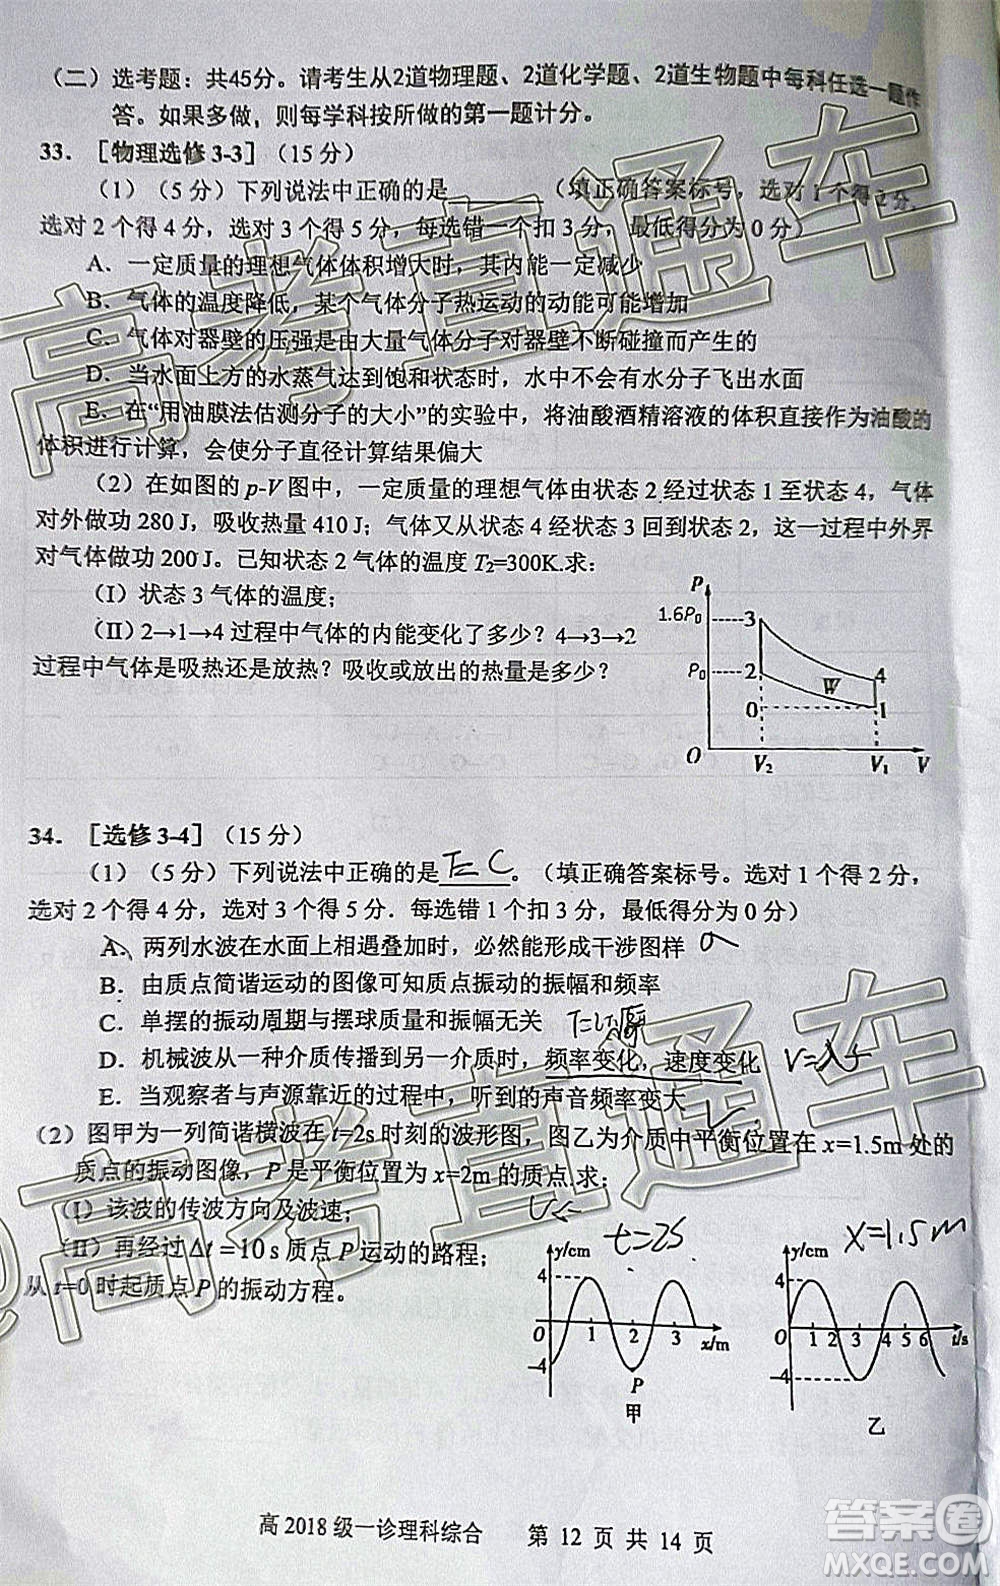 （二）选考题：共45分。请考生从2道物理题、2道化学题、2道生物题中每科任选一题作
答。如果多做，则每学科按所做的第一题计分。
33．［物理选修3-3］（15 分）
（1）（5 分）下列说法中正确的是______（填正确答案标号，选对 1 个得 2 分，
选对 2 个得 4 分，选对 3 个得 5 分，每选错一个扣 3 分，最低得分为 0 分）
A．一定质量的理想气体体积增大时，其内能一定减少
B．气体的温度降低，某个气体分子热运动的动能可能增加
C．气体对器壁的压强是由大量气体分子对器壁不断碰撞而产生的
D．当水面上方的水蒸气达到饱和状态时，水中不会有水分子飞出水面
E．在“用油膜法估测分子的大小”的实验中，将油酸酒精溶液的体积直接作为油酸的
体积进行计算，会使分子直径计算结果偏大
（2）在如图的 p-V 图中，一定质量的理想气体由状态 2 经过状态 1 至状态 4，气体
对外做功 280 J，吸收热量 410 J；气体又从状态 4 经状态 3 回到状态 2，这一过程中外界
对气体做功 200 J。已知状态 2 气体的温度 T₂=300K.求：
(Ⅰ) 状态 3 气体的温度；
(Ⅱ) 2→1→4 过程中气体的内能变化了多少？4→3→2
过程中气体是吸热还是放热？吸收或放出的热量是多少？
P
1.6P₀
3
P₀
2
4
W
0
1
O
V₂
V₁
V
34．［选修 3-4］（15 分）
（1）（5 分）下列说法中正确的是 E C 。（填正确答案标号。选对 1 个得 2 分，
选对 2 个得 4 分，选对 3 个得 5 分．每选错 1 个扣 3 分，最低得分为 0 分）
A．两列水波在水面上相遇叠加时，必然能形成干涉图样
B．由质点简谐运动的图像可知质点振动的振幅和频率
C．单摆的振动周期与摆球质量和振幅无关
D．机械波从一种介质传播到另一介质时，频率变化，速度变化 V=λf
E．当观察者与声源靠近的过程中，听到的声音频率变大
（2）图甲为一列简谐横波在 t=2s 时刻的波形图，图乙为介质中平衡位置在 x=1.5m 处的
质点的振动图像，P 是平衡位置为 x=2m 的质点.求：
(Ⅰ) 该波的传波方向及波速；
(Ⅱ) 再经过 Δt=10 s 质点 P 运动的路程；
从 t=0 时起质点 P 的振动方程。
t=2s
y/cm
4
O
1 2 3 x/m
-4
P
甲
x=1.5m
y/cm
4
O
1 2 3 4 5 6 t/s
-4
乙
高 2018 级一诊理科综合 第 12 页 共 14 页
@高考直通车
高考直通车
答案圈
MXQE.COM